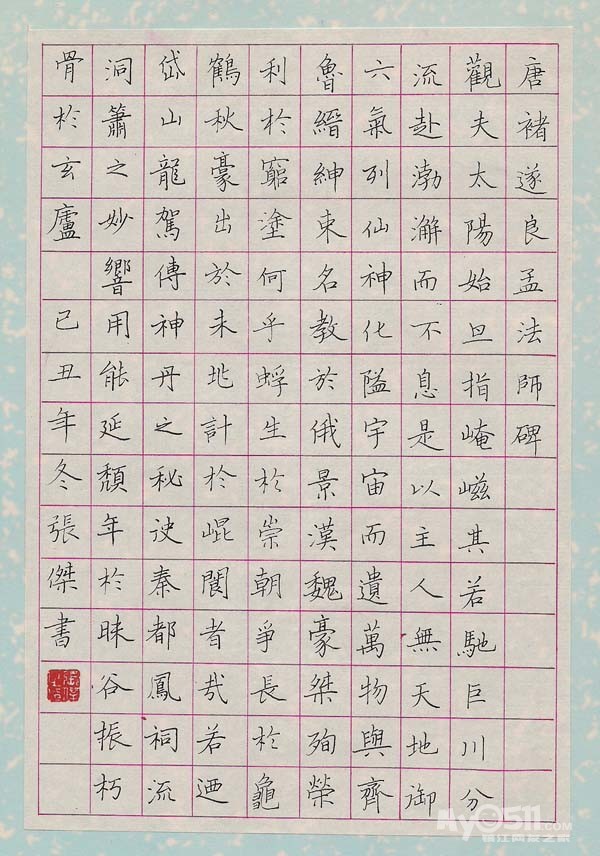 唐褚遂良孟法師碑
觀夫太陽始旦指崦嵫其若馳巨川分
流赴渤澥而不息是以主人無天地御
六氣列仙神化隘宇宙而遺萬物與齊
魯縉紳束名教於俄景漢魏豪桀殉榮
利於窮塗何乎蜉生於崇朝爭長於龜
鶴秋豪出於未兆計於崐閬者哉若迺
岱山龍駕傳神丹之秘決秦都鳳祠流
洞簫之妙響用能延頹年於昧谷振朽
骨於玄廬 己丑年冬張傑書
my0511.com